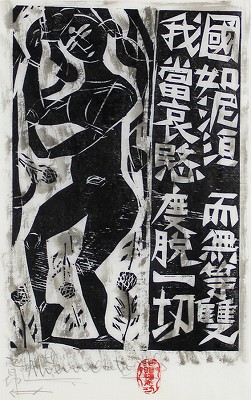 國如泥洹 而無等雙
我當哀愍 度脱一切